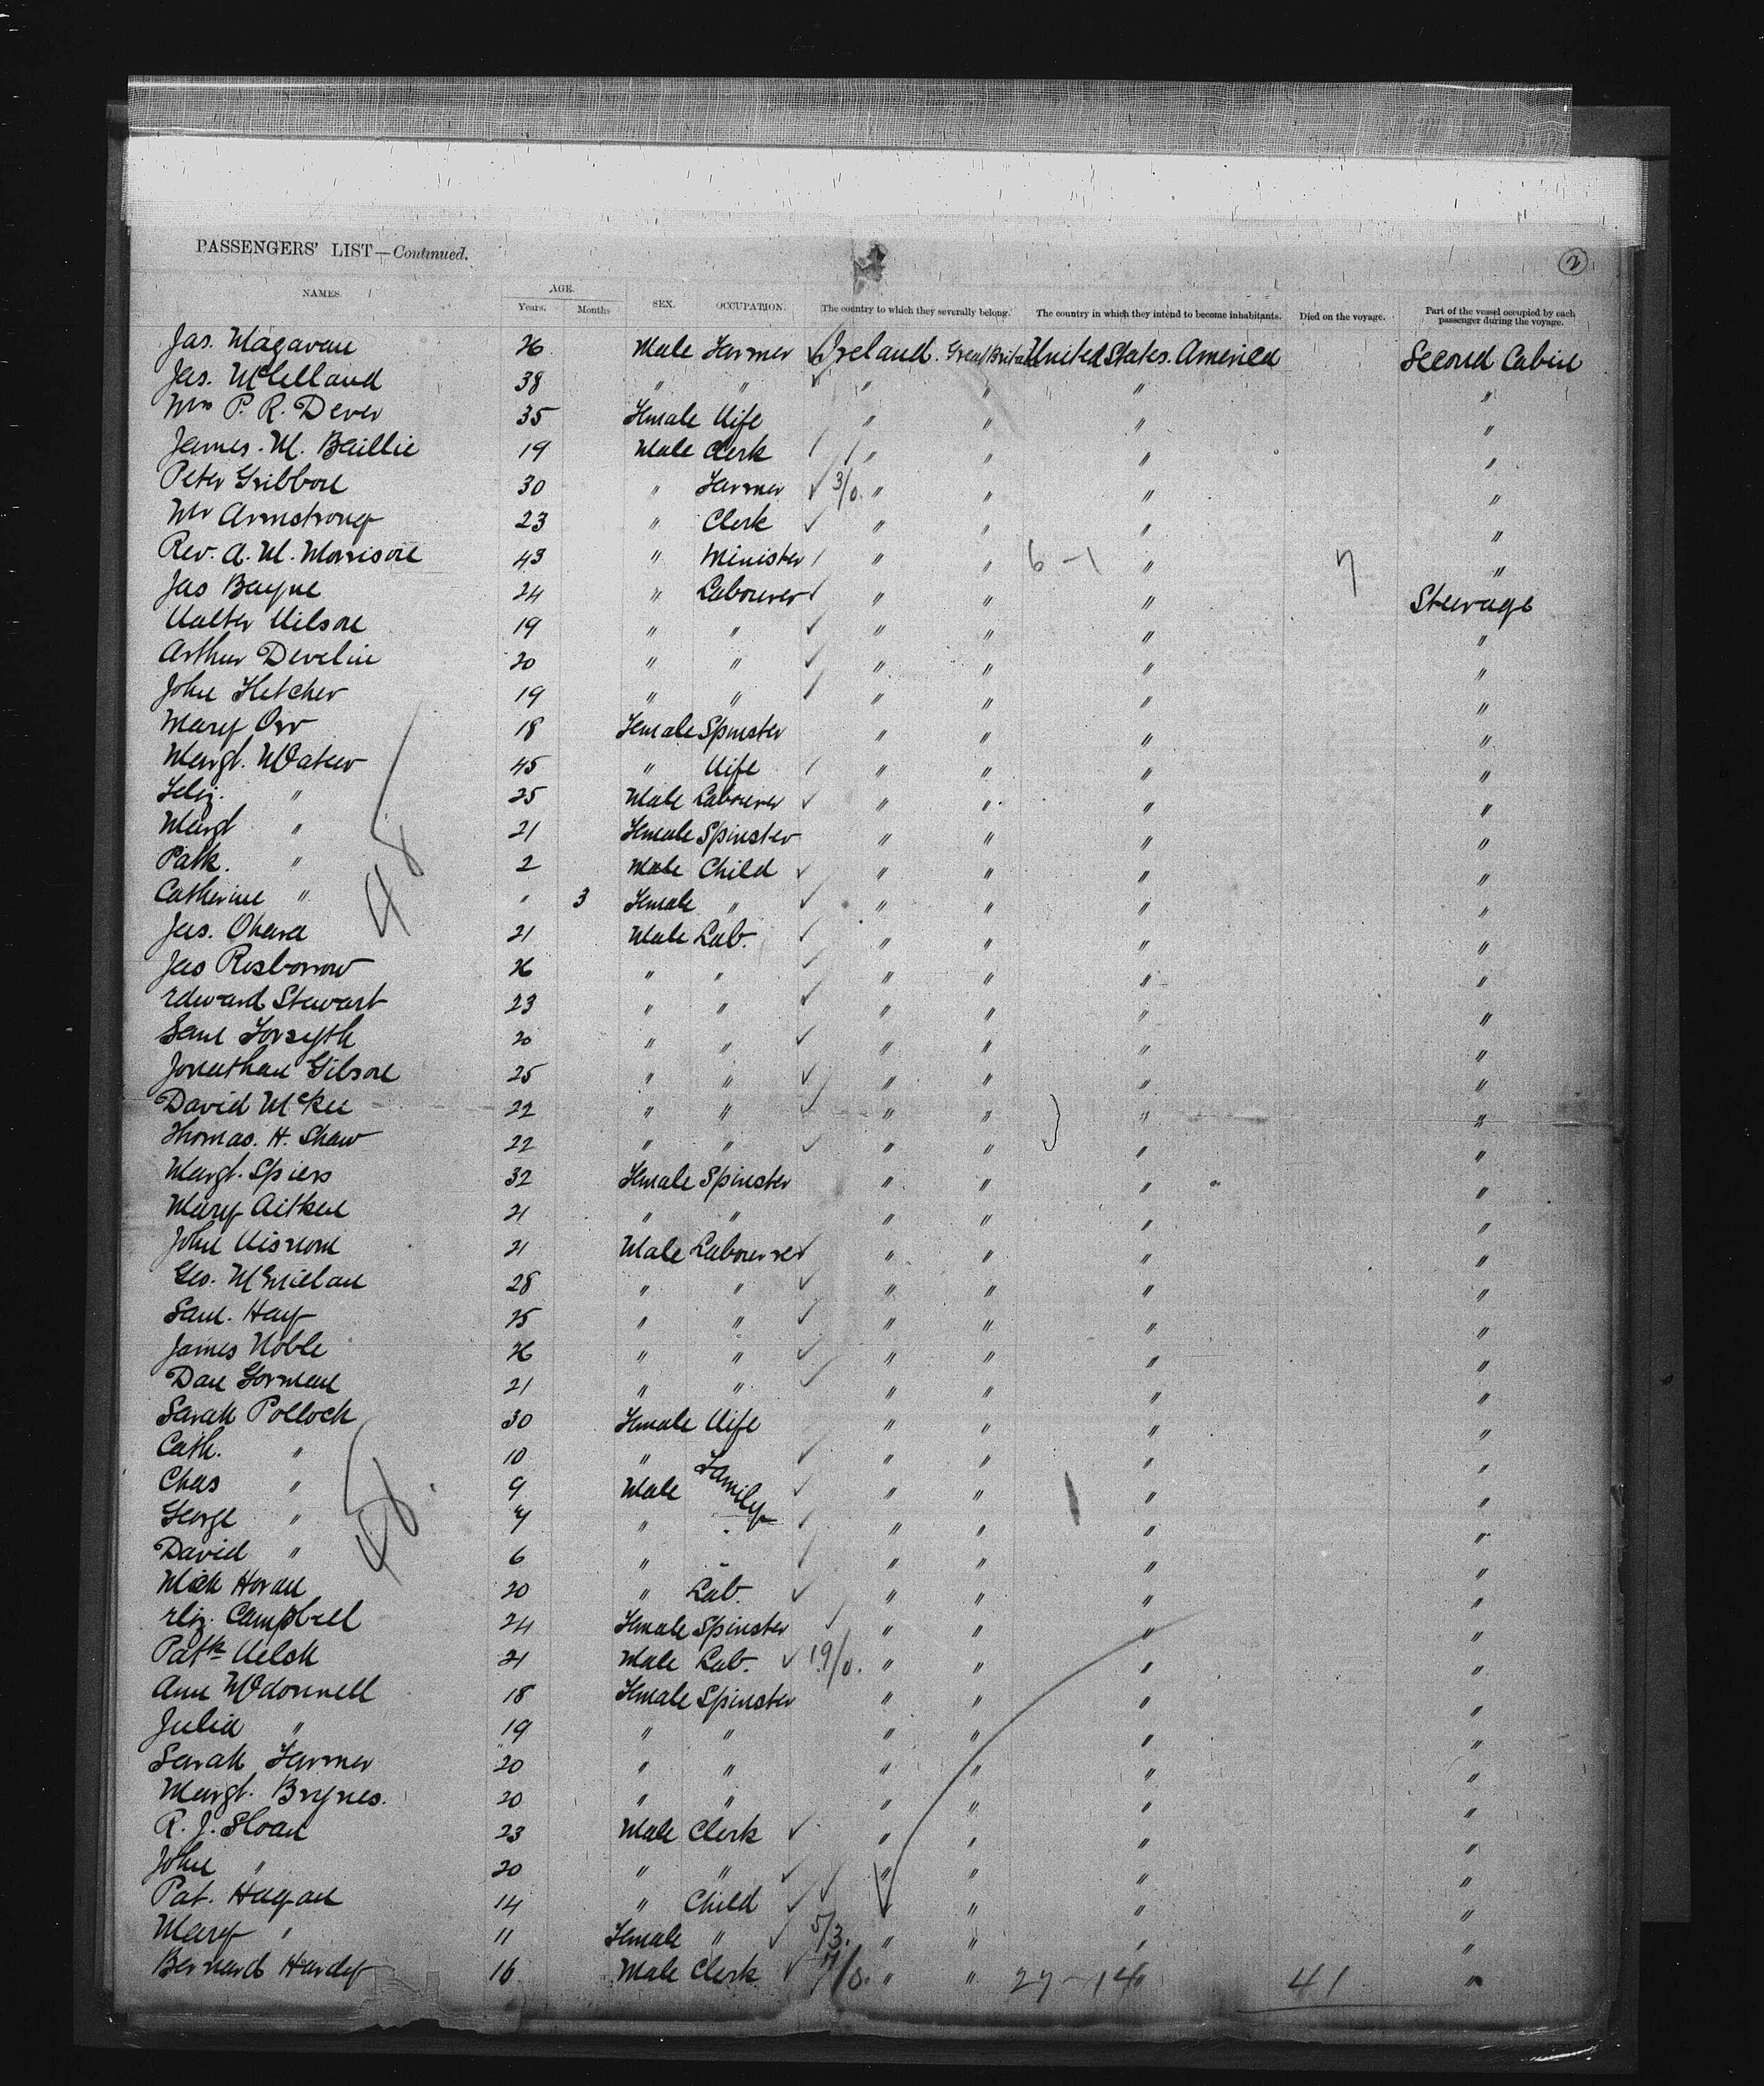 PASSENGERS' LIST—Continued. 2
NAMES. AGE. Years. Months SEX. OCCUPATION. The country to which they severally belong. The country in which they intend to become inhabitants. Died on the voyage. Part of the vessel occupied by each passenger during the voyage.
Jas. Magavan 26 Male Farmer Ireland. Great Britain United States. America Second Cabin
Jas. McClelland 38 " " " " " "
Mrs P. R. Dever 35 Female Wife " " " "
James. M. Baillie 19 Male Clerk " " " "
Peter Gribbon 30 " Farmer 3/0. " " " "
Mr Armstrong 23 " Clerk " " " "
Rev. A. M. Morrison 43 " Minister " " 6-1 " 7 "
Jas Bayne 24 " Labourer " " " Steerage
Walter Wilson 19 " " " " " "
Arthur Develin 20 " " " " " "
John Fletcher 19 " " " " " "
Mary Orr 18 Female Spinster " " " "
Margt. McAteer 45 " Wife " " " "
Feliz. " 25 Male Labourer " " " "
Margt " 21 Female Spinster " " " "
Patk. " 2 Male Child " " " "
Catherine " " 3 Female " " " " "
Jas. Ohara 21 Male Lab. " " " "
Jas Rosborrow 26 " " " " " "
Edward Stewart 23 " " " " " "
Saml Forsyth 20 " " " " " "
Jonathan Gibson 25 " " " " " "
David McKee 22 " " " " " "
Thomas. H. Shaw 22 " " " " " "
Margt. Spiers 32 Female Spinster " " " "
Mary Aitken 21 " " " " " "
John Wisnom 21 Male Labourer " " " "
Geo. McMillan 28 " " " " " "
Saml. Hay 25 " " " " " "
James Noble 26 " " " " " "
Dan Gorman 21 " " " " " "
Sarah Pollock 30 Female Wife " " " "
Cath. " 10 " Family " " " "
Chas " 9 Male " " " "
George " 7 " " " " " "
David " 6 " " " " " "
Mick Horan 20 " Lab. " " " "
Eliz. Campbell 24 Female Spinster " " " "
Patk Welsh 21 Male Lab. 19/0. " " " "
Ann McDonnell 18 Female Spinster " " " "
Julia " 19 " " " " " "
Sarah Farmer 20 " " " " " "
Margt. Brynes. 20 " " " " " "
R. J. Sloan 23 Male Clerk " " " "
John " 20 " " " " " "
Pat. Hagan 14 " Child " " " "
Mary " 11 Female " 5/3. " " " "
Bernard Hardy 16 Male Clerk 4/0. " " 27-14 " 41 "